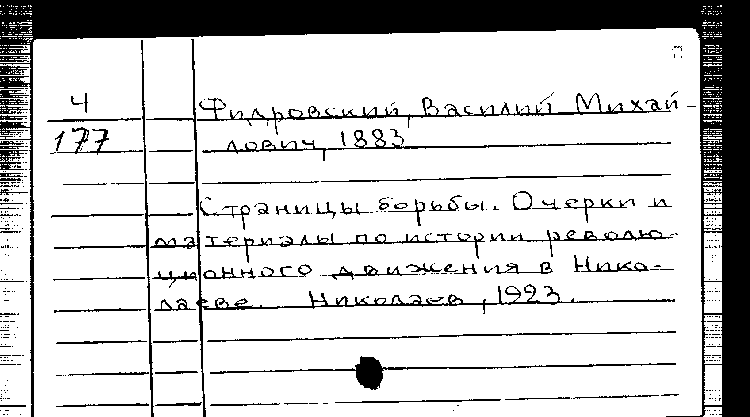 Ч
Фидровский, Василий Михай-
177
лович, 1883
Страницы борьбы. Очерки и
материалы по истории револю-
ционного движения в Нико-
лаеве. Николаев, 1923.